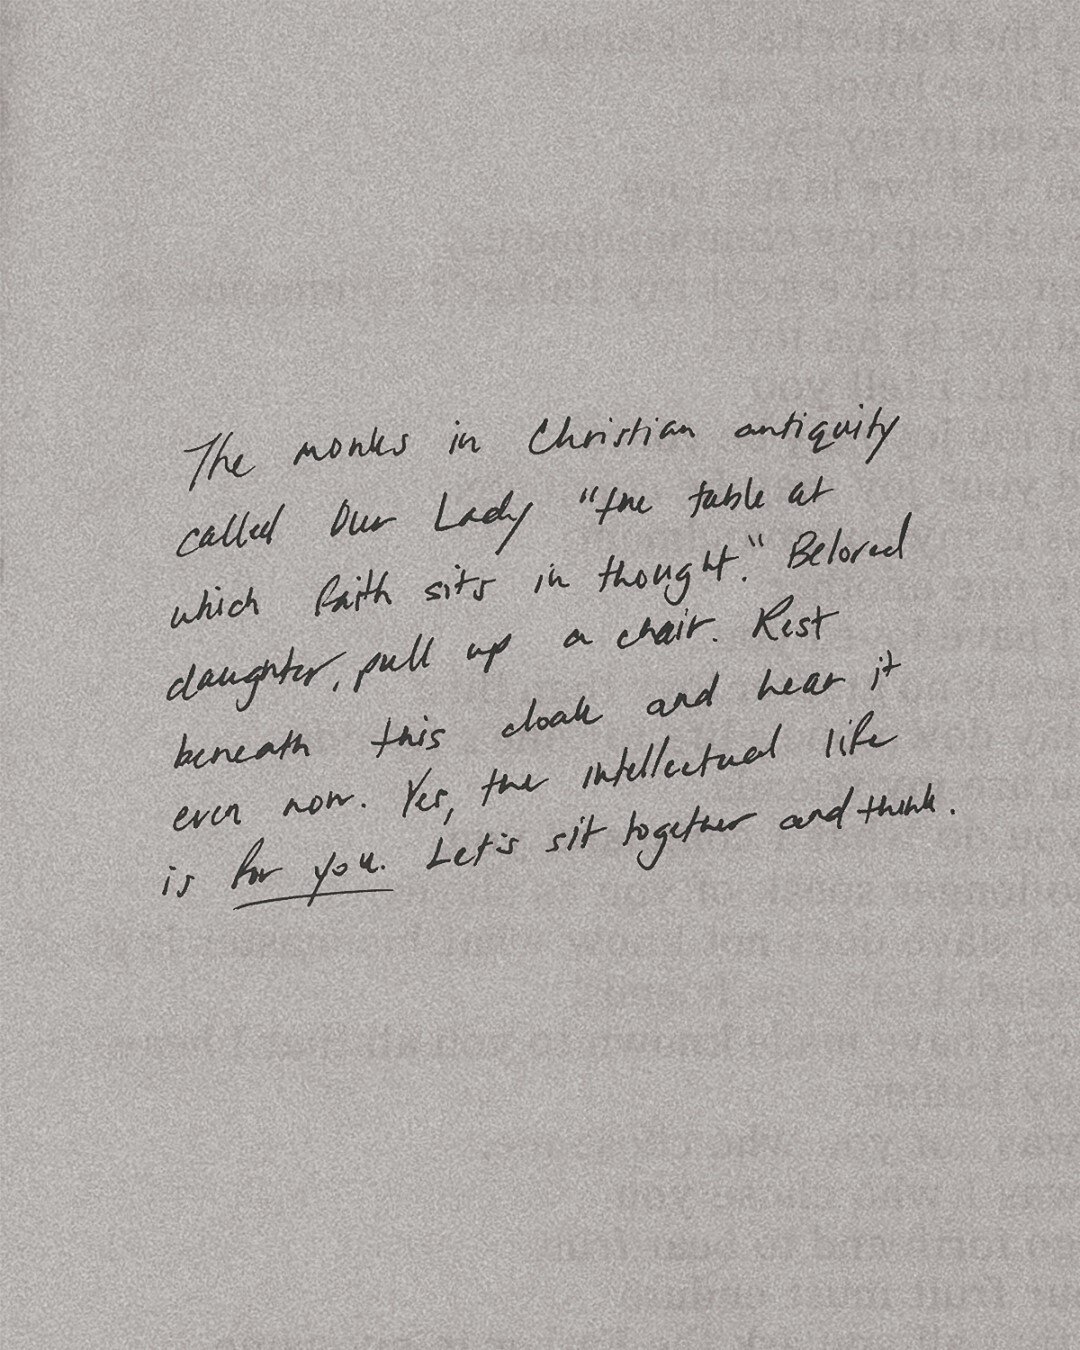 The monks in Christian antiquity
called Our Lady "the table at
which faith sits in thought." Beloved
daughter, pull up a chair. Rest
beneath this cloak and hear it
even now. Yes, the intellectual life
is for you. Let's sit together and think.